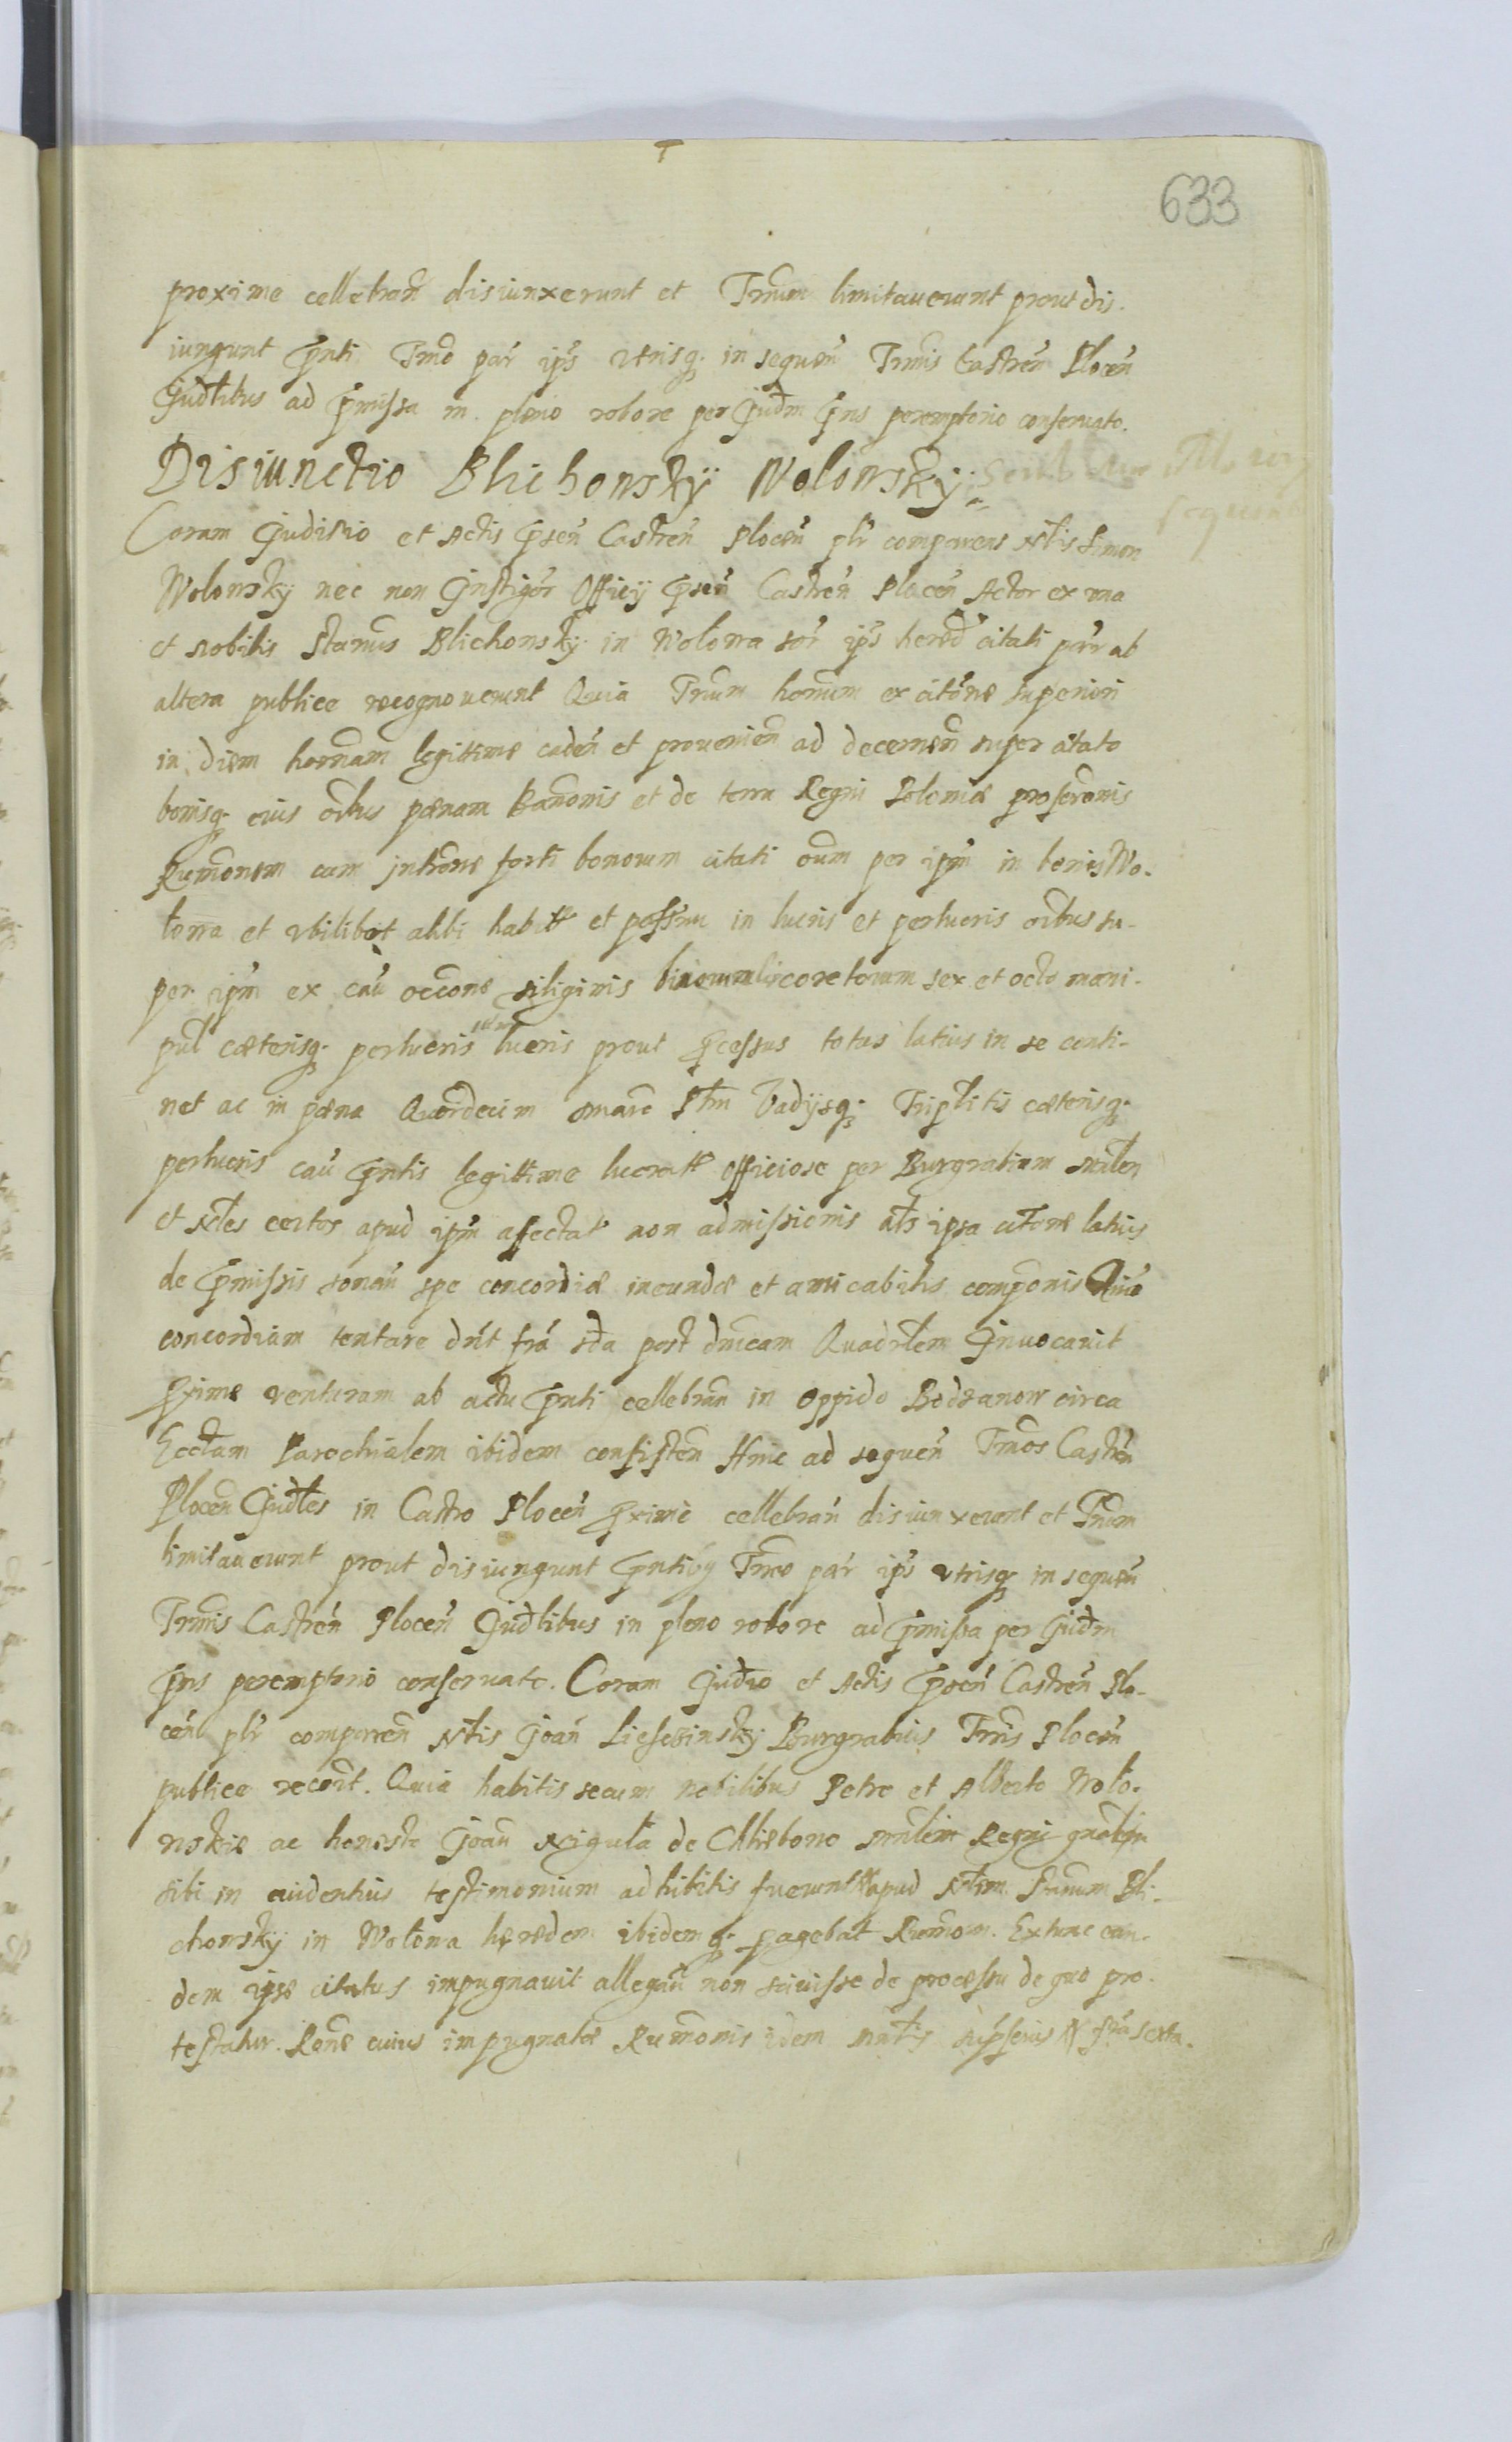 633
proxime cellebrań disiunxerunt et Trmum limitauerunt prout dis-
iungunt Pnti Tmo par ips vtrisq. in sequeń Trmis Castreń Ploceń
Judłibus ad Pmissa in pleno robore per Judm Pns peremptorio conseruato.
Disiunctio Blichonsky Wolonsky
Coram Juditio et Actis Psen Castreń Ploceń plr comparens Nłis Simon
Wolonsky nec non Instigor Officij Pseń Castreń Ploceń Actor ex vna
et Nobilis Stanus Blichonsky in Wolonia sor ips hered citati par ab
altera publice recognouerunt Quia Trmum hornum ex citone superiori
in diem hornam legittime cadeń et prouenień ad decerneń super citato
bonisq. eius oibus pœnam Banonis et de terra Regni Poloniæ proscronis
Rumonem cum introne forti bonorum citati oum per ipm in bonis Wo-
lonia et vbilibet alibi habitt et possmu in lucris et perlucris oibus su-
per ipm ex cau occone siliginis coretorum sex et octo mani-
pul cæterisq. perlucris lucris prout Pcessus totus latius in se conti-
net ac in pœna Quordecim marc Płm Vadijsq. Triplitis cæterisq.
perlucris cau Pntis legittime lucratt officiose per Burgrabium
et Nłes certos apud ipm afectat non admissionis ałs ipsa citone latius
de Pmissis sonań spe concordiæ ineundæ et amicabilis componis
concordiam tentare dnt fra sda post dnicam Quadrłem Inuocauit
Pxime venturam ab actu Pnti cellebrań in oppido Bodzanow circa
Eccłam Parochialem ibidem consisteń Hinc ad sequeń Tmos Castreń
Ploceń Judłes in Castro Ploceń Pxime cellebrań disiunxerunt et Trmum
limitauerunt prout disiungunt Tmo par ips vtrisq. in sequeń
Trmis Castreń Ploceń Judłibus in pleno robore ad Pmissa per Judm
Pns peremptorio conseruato. Coram Judio et Actis Pseń Castreń Plo-
ceń plr compareń Nłis Joań Burgrabius Ploceń
publice recort. Quia habitis secum nobilibus Petro et Alberto Woło-
nskie ac honesto Joań Nigula de Chlebowo Regni
sibi in euidentius testimonium adhibitis apud Nłem Stanum Bli-
chonsky in Wolonia hæredem ibidemq. pagebat Rumom. Ex tunc ean-
dem ipse citatus impugnauit allegań non sciuisse de processu de quo pro-
testatur. Rone cuius impugnatæ Rumonis idem sexta.